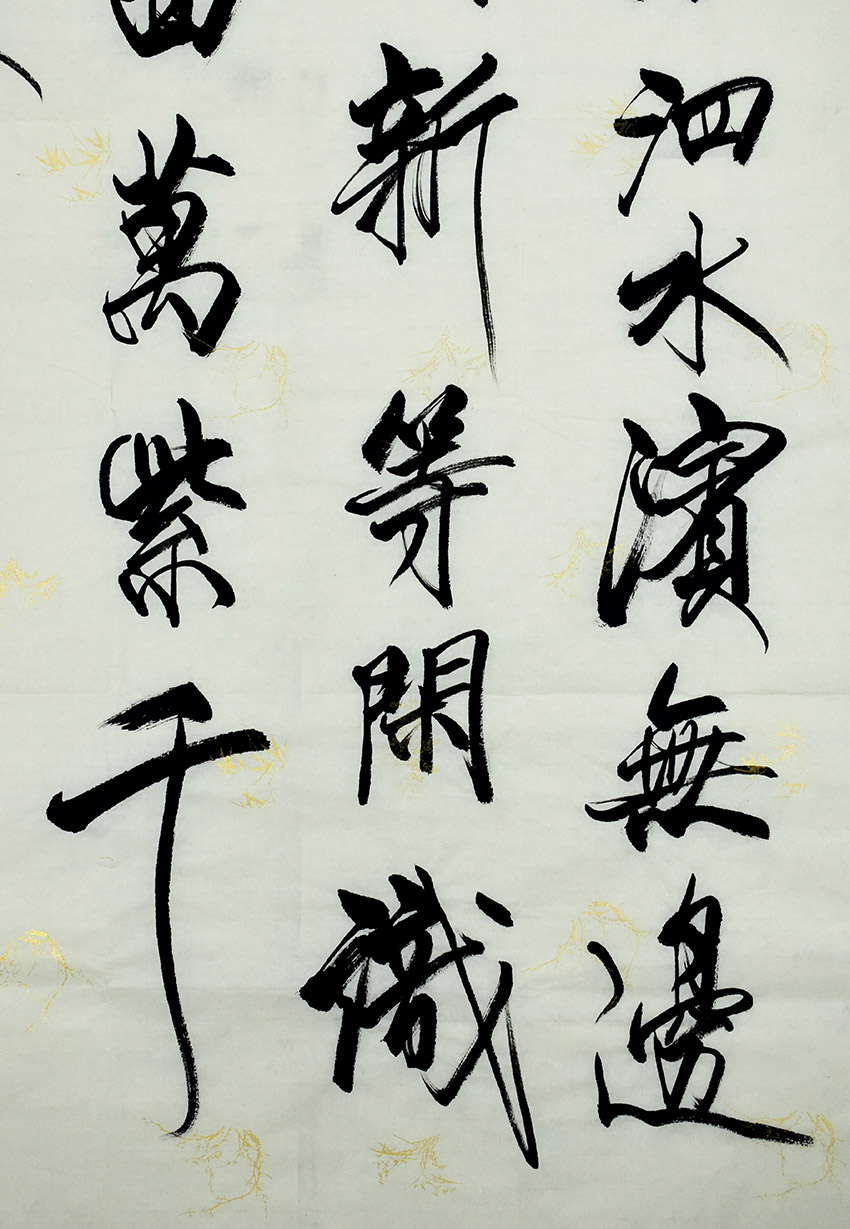 泗水濱無邊
新等閑識
面萬紫千